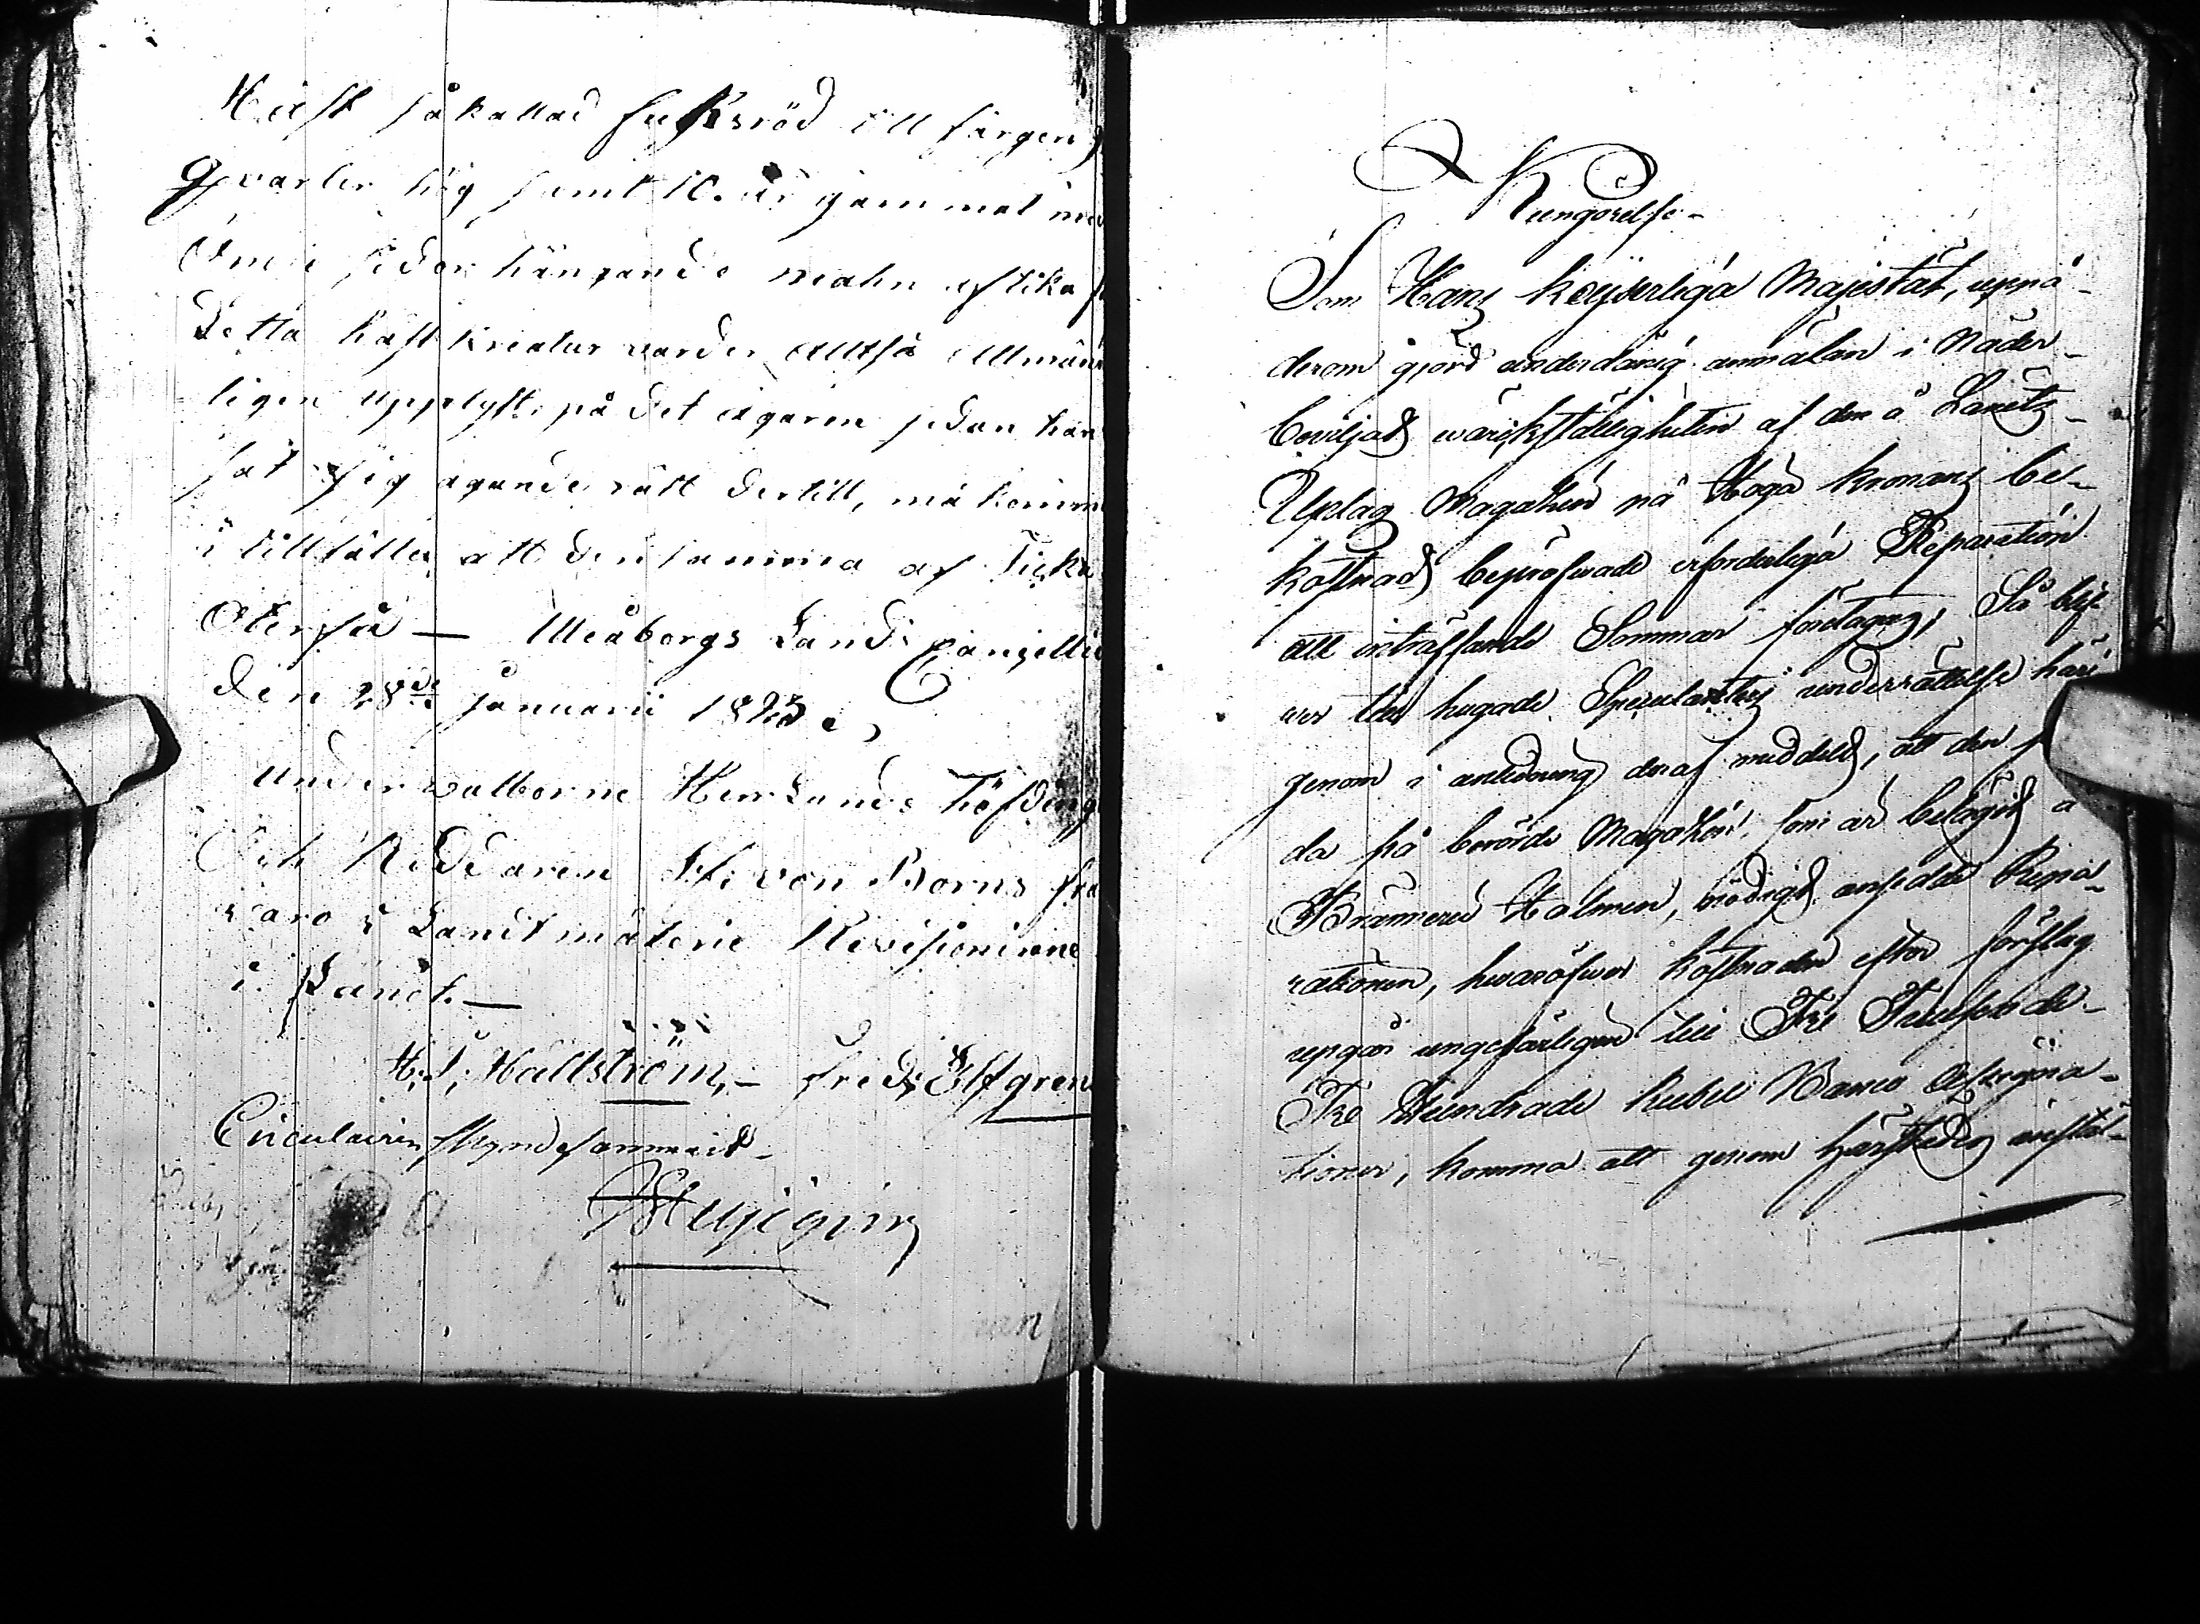 Häst såkallad fuksröd till färgen
qvarter hög samt 10. år gammal med
Ömse sidor hängande mahn af lika
Detta hästkreatur varder Alltså Allmänn
ligen upplyst, på det ägaren sedan han
sig ägande rätt dertill, må komma
i tillfälle att densamma af
Återfå — Uleåborgs Lands Cancellie
den 28de Januarii 1823
Under Välborne Herr Lands Höfdinge
Och Riddaren von Borns
varo i Landtmäterie Revisionerne
i Länet. —
H: J: Hallström, — Fredr: Elfgren
Circulairen skyndesammeligt

Kungörelse
Som Hans Keijserliga Majestät, uppå
derom gjord underdånig anmälan i Nåder
beviljat värkställigheten af den å Lanetz
Uplag Magazin på Höga Kronans be-
kostnad bepröfvade erforderliga Reparation
att inträffande Sommar företagas; Så blif
ver the hugade Speculanters underrättelse häri
genom i anledning deraf meddelt, att den
da på berörde Magazin, som är belägit å
Holmen, nödigt ansedde Repa-
rationen, hvaröfver kostnaden efter förslag
upgår ungefärligen till Tre Tusende
Tre Hundrade Rubel Banco Assigna-
tioner, komma att genom härstädes anstäl-